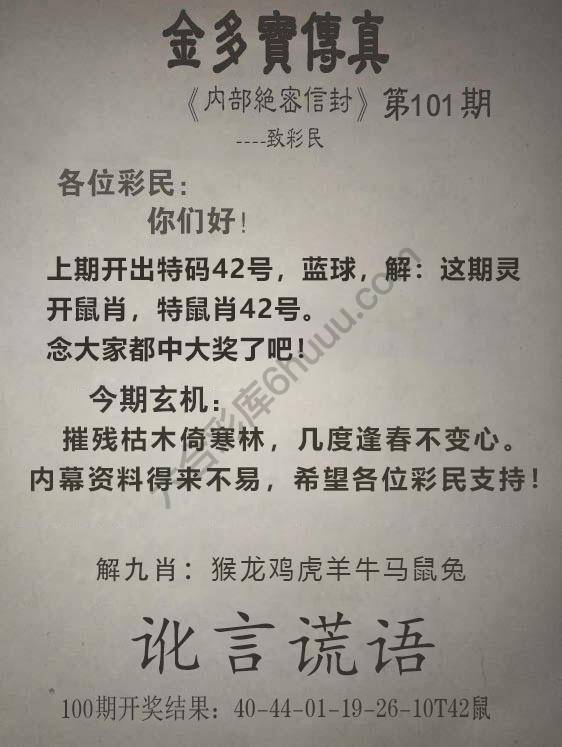 金多寳傳真
《内部絶密信封》第101期
----致彩民
各位彩民：
你们好！
上期开出特码42号，蓝球，解：这期灵
开鼠肖，特鼠肖42号。
念大家都中大奖了吧！
今期玄机：
摧残枯木倚寒林，几度逢春不变心。
内幕资料得来不易，希望各位彩民支持！
六合彩库6huuu.com
解九肖：猴龙鸡虎羊牛马鼠兔
讹言谎语
100期开奖结果：40-44-01-19-26-10T42鼠